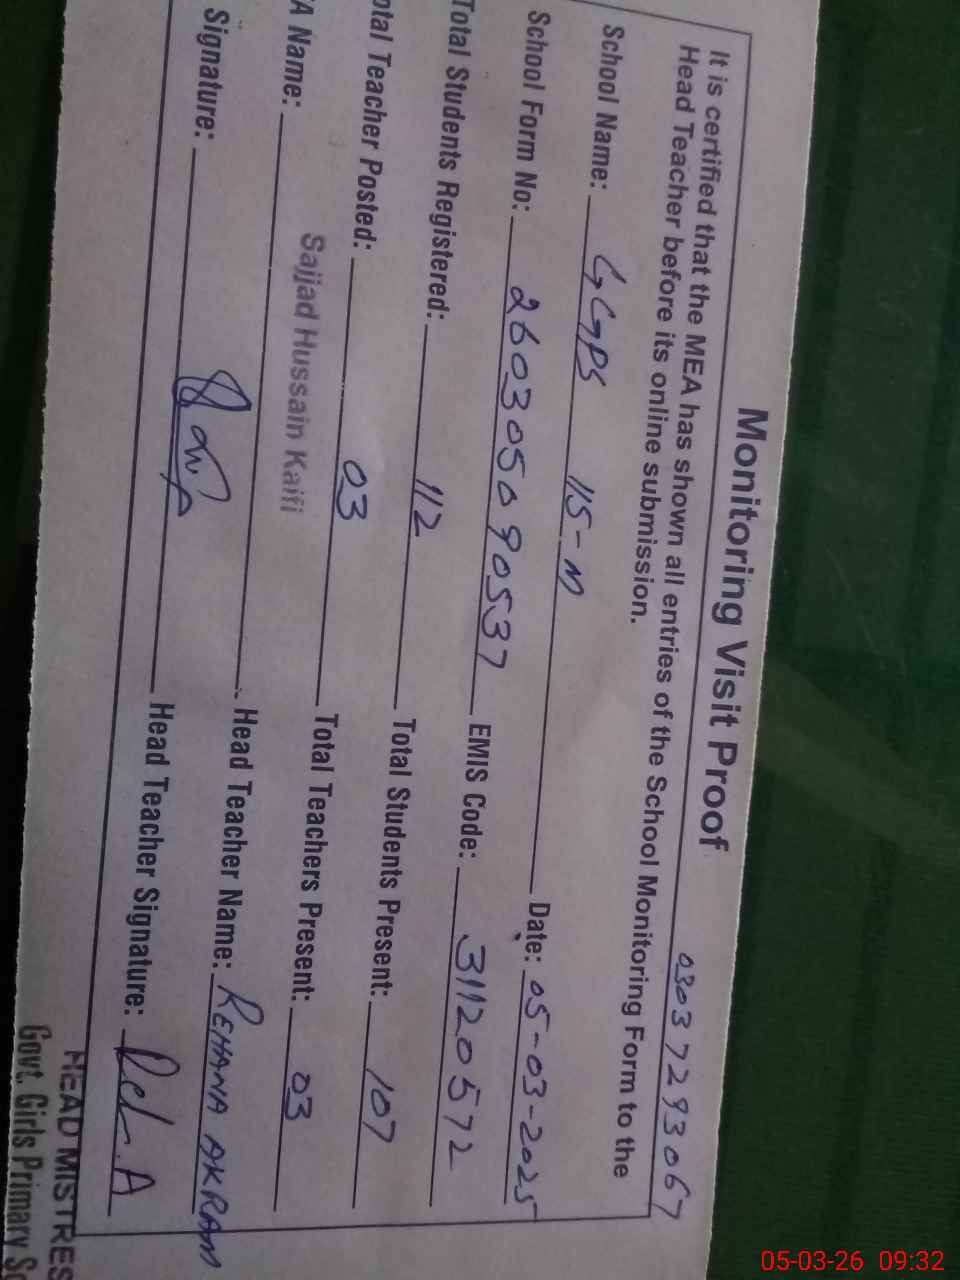 Monitoring Visit Proof
03037293067
It is certified that the MEA has shown all entries of the School Monitoring Form to the
Head Teacher before its online submission.
School Name: GGPS 115-M Date: 05-03-2025
School Form No: 26030509 0537 EMIS Code: 31120572
Total Students Registered: 112 Total Students Present: 107
otal Teacher Posted: 03 Total Teachers Present: 03
A Name: Sajjad Hussain Kaifi Head Teacher Name: REHANA AKRAM
Signature: Head Teacher Signature:
HEAD MISTRES
Govt. Girls Primary Sc
05-03-26 09:32